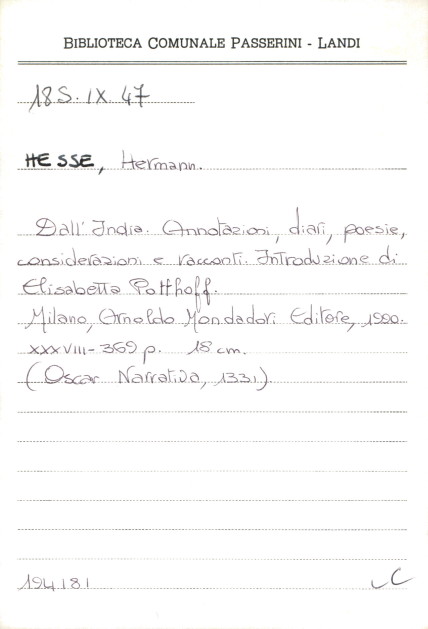 BIBLIOTECA COMUNALE PASSERINI - LANDI
18S. IX. 47
HESSE, Hermann.
Dall'India. Annotazioni, diari, poesie,
considerazioni e racconti. Introduzione di
Elisabetta Potthoff.
Milano, Arnoldo Mondadori Editore, 1990.
XXXVIII-369 p. 18 cm.
(Oscar Narrativa, 1331).
194181